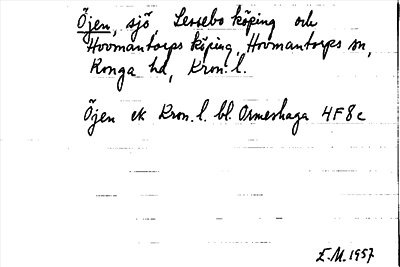 Öjen, sjö, Lessebo köping och
Hovmantorps köping, Hovmantorps sn,
Konga hd, Kron. l.
Öjen ek Kron. l. bl. Ormeshaga 4F8c
E.M. 1957